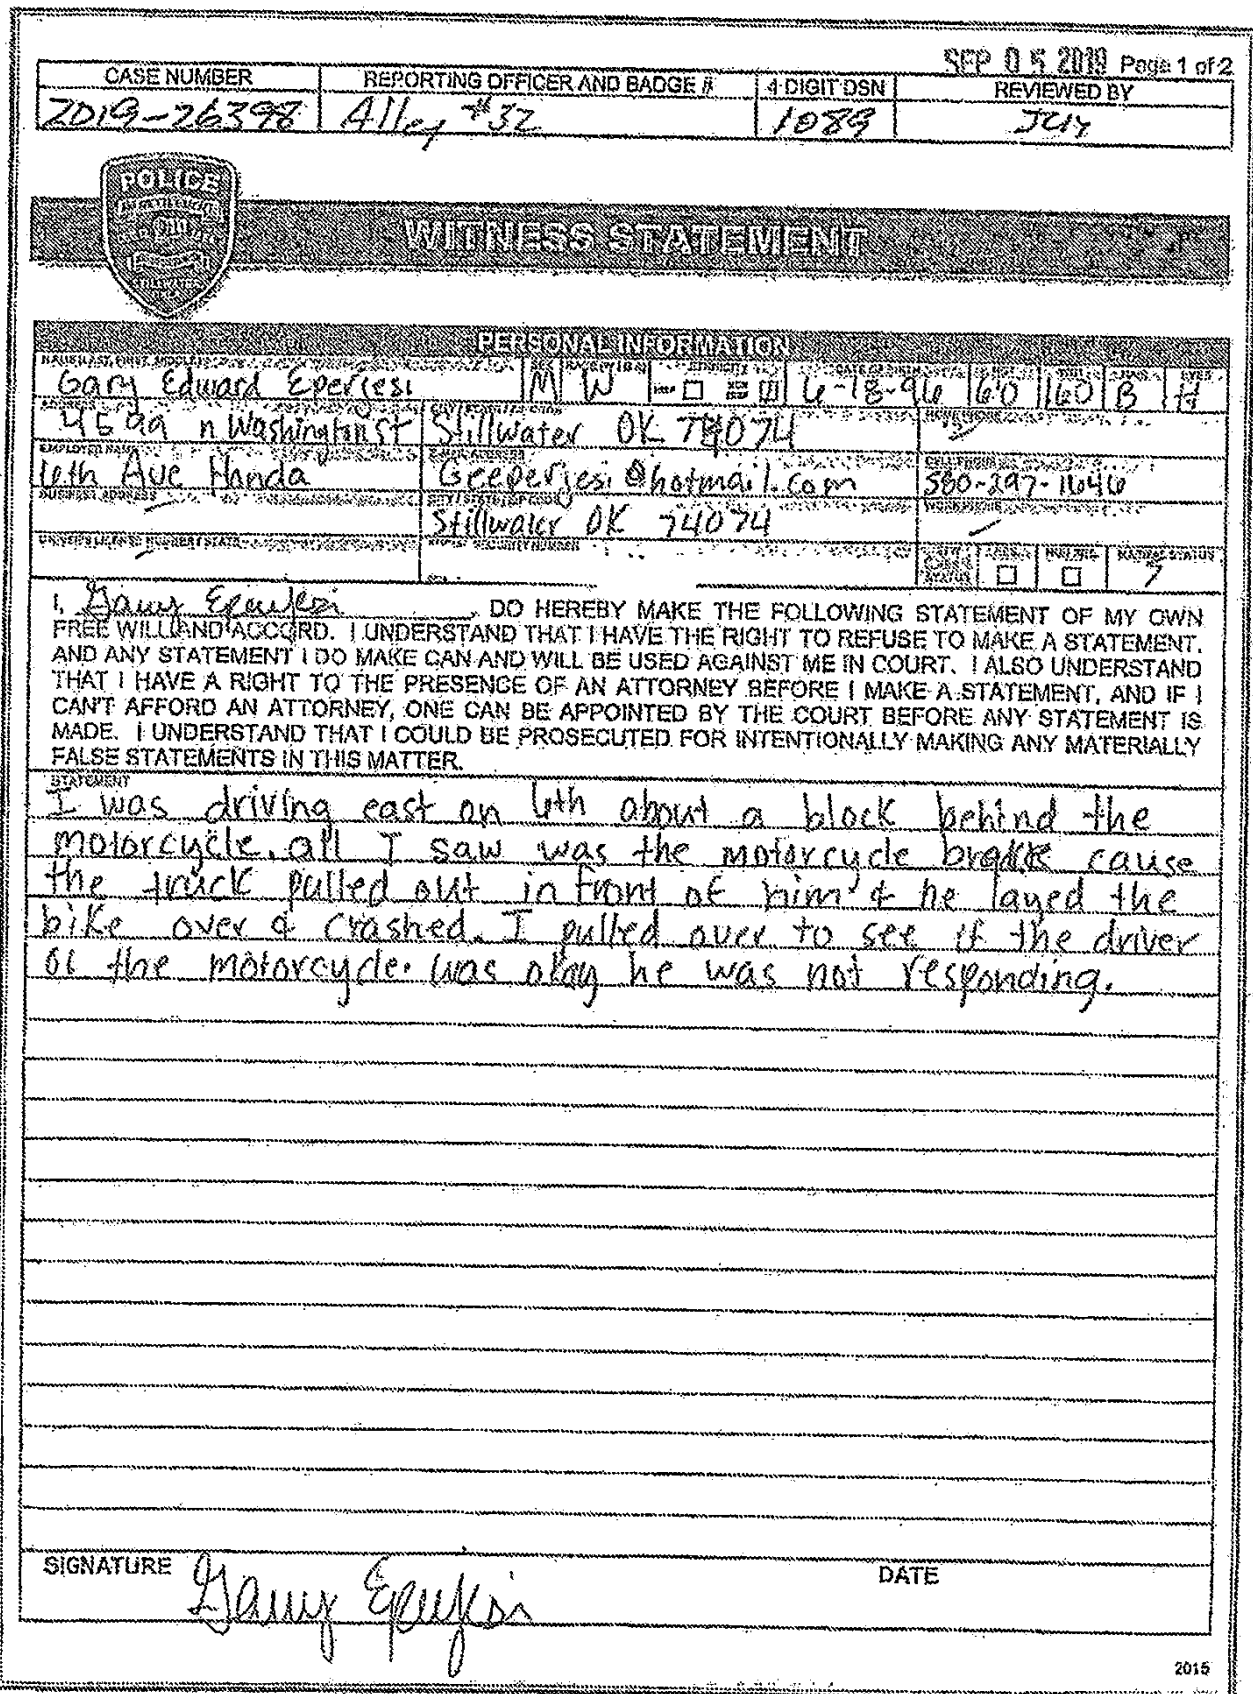 SEP 05 2019 Page 1 of 2
CASE NUMBER REPORTING OFFICER AND BADGE # 4-DIGIT DSN REVIEWED BY
2019-26398 Alley #32 1089
POLICE
STILLWATER
WITNESS STATEMENT
PERSONAL INFORMATION
NAME (LAST, FIRST, MIDDLE)
Gary Edward Eperjesi M W 6-18-96 160 B H
4599 n Washington st Stillwater OK 74074
EMPLOYER NAME
Ave Honda Geeperjesi@hotmail.com 580-297-1646
BUSINESS ADDRESS
Stillwater OK 74074
I, Gary Eperjesi, DO HEREBY MAKE THE FOLLOWING STATEMENT OF MY OWN
FREE WILL AND ACCORD. I UNDERSTAND THAT I HAVE THE RIGHT TO REFUSE TO MAKE A STATEMENT,
AND ANY STATEMENT I DO MAKE CAN AND WILL BE USED AGAINST ME IN COURT. I ALSO UNDERSTAND
THAT I HAVE A RIGHT TO THE PRESENCE OF AN ATTORNEY BEFORE I MAKE A STATEMENT, AND IF I
CAN'T AFFORD AN ATTORNEY, ONE CAN BE APPOINTED BY THE COURT BEFORE ANY STATEMENT IS
MADE. I UNDERSTAND THAT I COULD BE PROSECUTED FOR INTENTIONALLY MAKING ANY MATERIALLY
FALSE STATEMENTS IN THIS MATTER.
STATEMENT
I was driving east on 6th about a block behind the
motorcycle. all I saw was the motorcycle brake cause
the truck pulled out in front of him & he layed the
bike over & crashed. I pulled over to see if the driver
of the motorcycle. was okay he was not responding.
SIGNATURE Gary Eperjesi DATE
2015